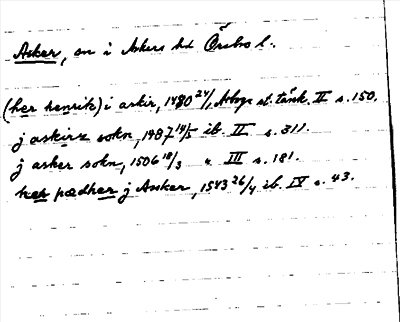 Asker, sn i Askers hd Örebro l.
(her henrik) i askir, 1480 24/1, Arboga st. tänk. II s. 150.
j askirz sokn, 1487 14/5 ib. II s. 311.
j asker sokn, 1506 18/3 " III s. 181.
her pædher j Assker, 1543 26/4 ib. IV s. 43.